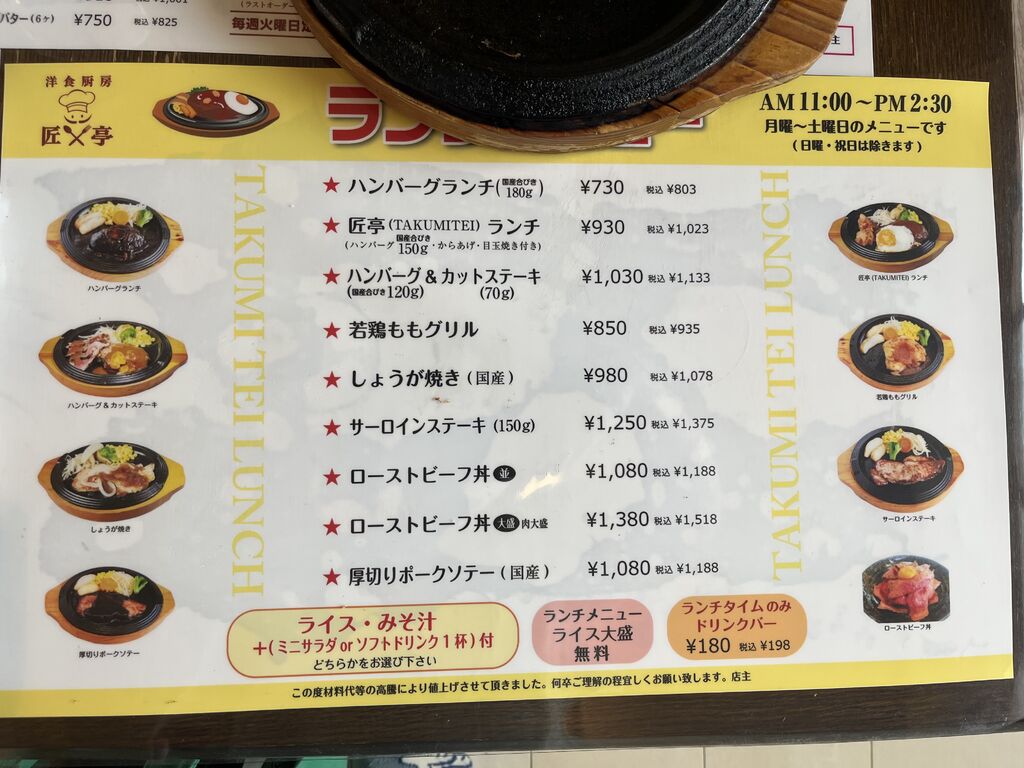 バター(6ヶ) ¥750 税込 ¥825
(ラストオーダー
毎週火曜日定
主
洋食厨房
匠亭
ラン
AM 11:00～PM 2:30
月曜～土曜日のメニューです
(日曜・祝日は除きます)
TAKUMI TEI LUNCH
★ ハンバーグランチ(国産合びき180g) ¥730 税込 ¥803
★ 匠亭(TAKUMITEI) ランチ ¥930 税込 ¥1,023
(ハンバーグ国産合びき150g・からあげ・目玉焼き付き)
★ ハンバーグ&カットステーキ ¥1,030 税込 ¥1,133
(国産合びき120g) (70g)
★ 若鶏ももグリル ¥850 税込 ¥935
★ しょうが焼き(国産) ¥980 税込 ¥1,078
★ サーロインステーキ(150g) ¥1,250 税込 ¥1,375
★ ローストビーフ丼 並 ¥1,080 税込 ¥1,188
★ ローストビーフ丼 大盛 肉大盛 ¥1,380 税込 ¥1,518
★ 厚切りポークソテー(国産) ¥1,080 税込 ¥1,188
TAKUMI TEI LUNCH
ハンバーグランチ
ハンバーグ&カットステーキ
しょうが焼き
厚切りポークソテー
匠亭(TAKUMITEI)ランチ
若鶏ももグリル
サーロインステーキ
ローストビーフ丼
ライス・みそ汁
+(ミニサラダorソフトドリンク1杯)付
どちらかをお選び下さい
ランチメニュー
ライス大盛
無料
ランチタイムのみ
ドリンクバー
¥180 税込 ¥198
この度材料代等の高騰により値上げさせて頂きました。何卒ご理解の程宜しくお願い致します。店主